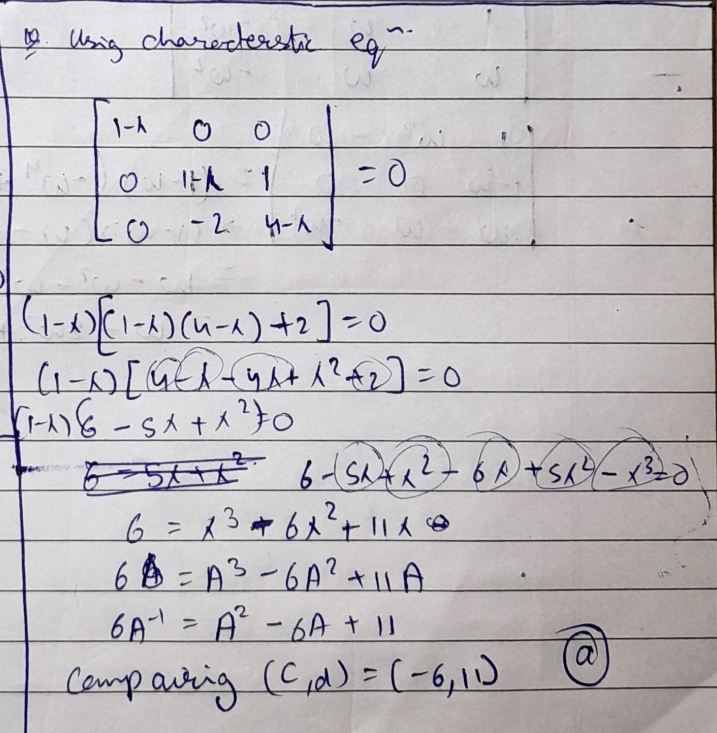 Q. Using characterstic eqⁿ.
[1-λ 0 0
0 1-λ 1
0 -2 4-λ] = 0
(1-λ)[(1-λ)(4-λ)+2] = 0
(1-λ)[4-λ-4λ+λ²+2] = 0
(1-λ)(6-5λ+λ²)=0
6-5λ+λ² 6-5λ+λ²-6λ+5λ²-λ³=0
6 = λ³-6λ²+11λ
6 = A³-6A²+11A
6A⁻¹ = A²-6A+11
Comparing (C,d) = (-6,11) (a)